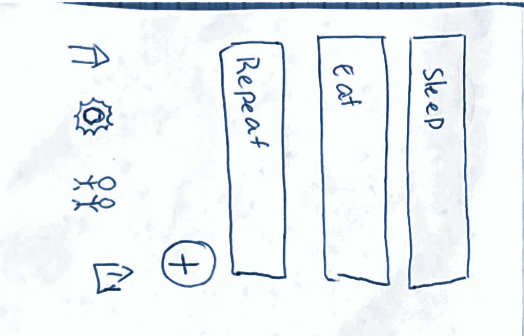 Sleep
Eat
Repeat
+